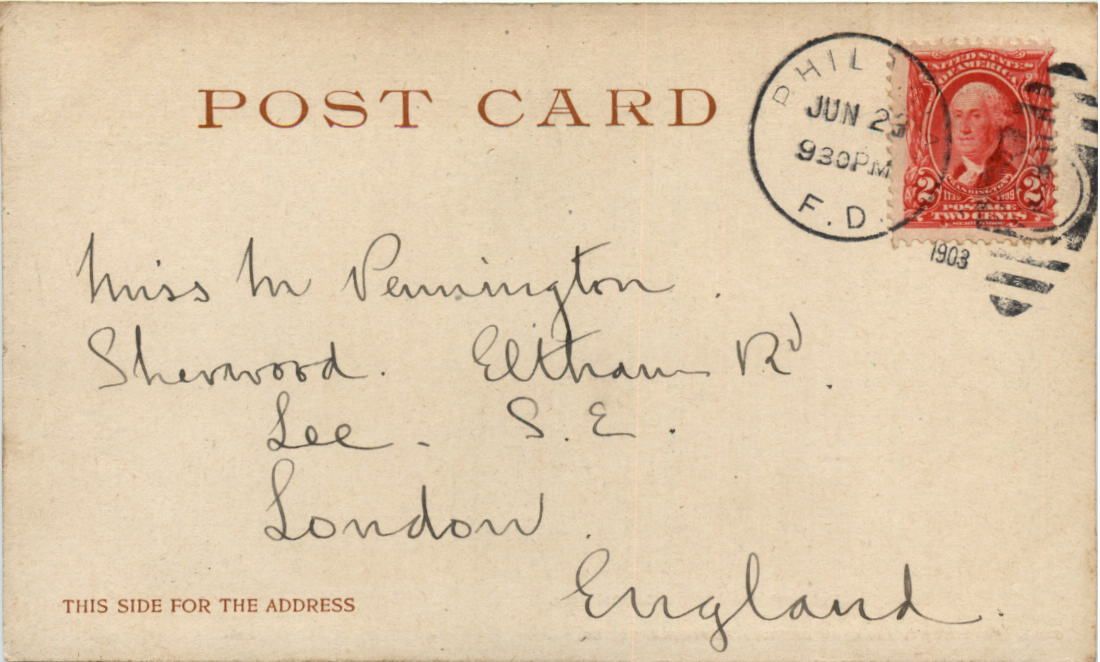 POST CARD
PHIL
JUN 23
930PM
F.D.
1903
UNITED STATES
OF AMERICA
WASHINGTON
2 2
POSTAGE
TWO CENTS
Miss M Pennington.
Sherwood. Eltham Rd.
Lee - S.E.
London.
England.
THIS SIDE FOR THE ADDRESS